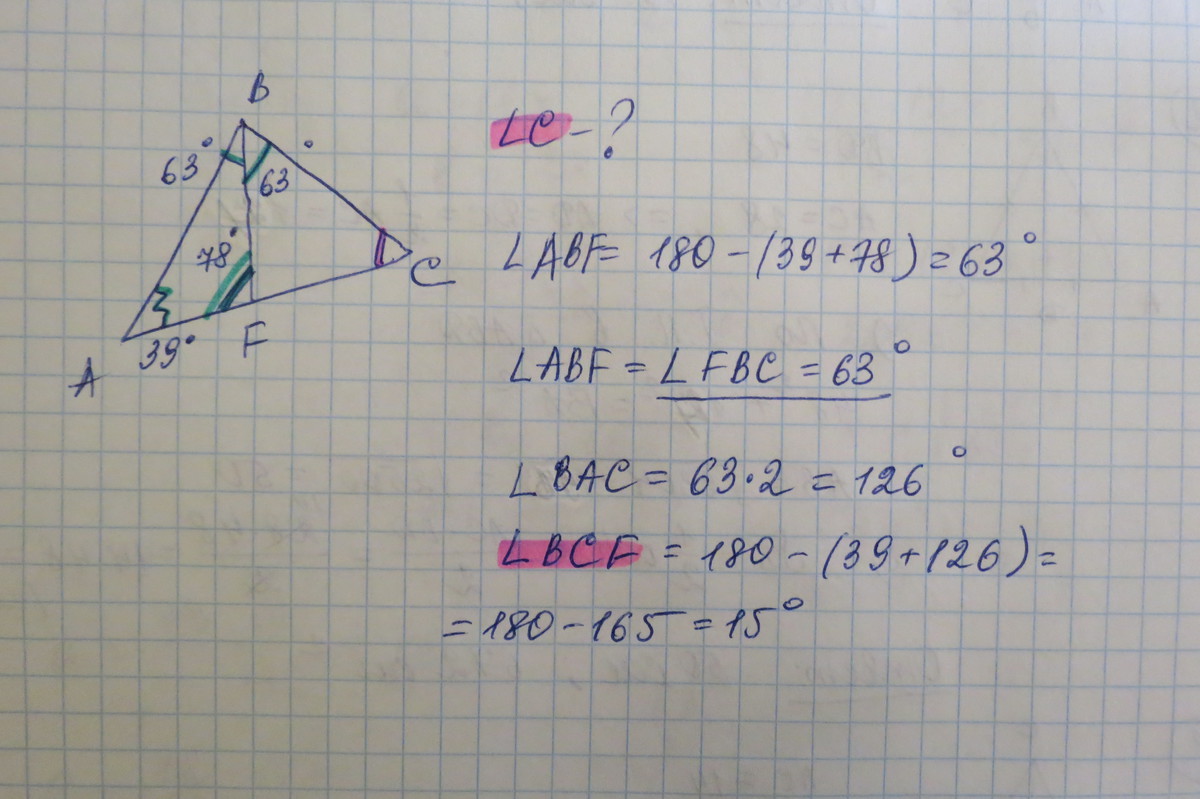 B
63°
63°
78°
C
A
39°
F
∠C - ?
∠ABF = 180 - (39 + 78) = 63°
∠ABF = ∠FBC = 63°
∠BAC = 63·2 = 126°
∠BCF = 180 - (39 + 126) =
= 180 - 165 = 15°